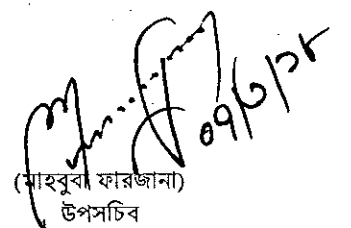 ০৭/৩/১৮
(মাহবুবা ফারজানা)
উপসচিব